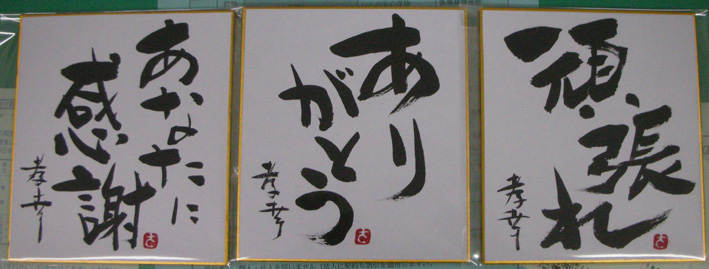 あなたに
感謝
孝幸
あり
がとう
孝幸
頑張れ
孝幸